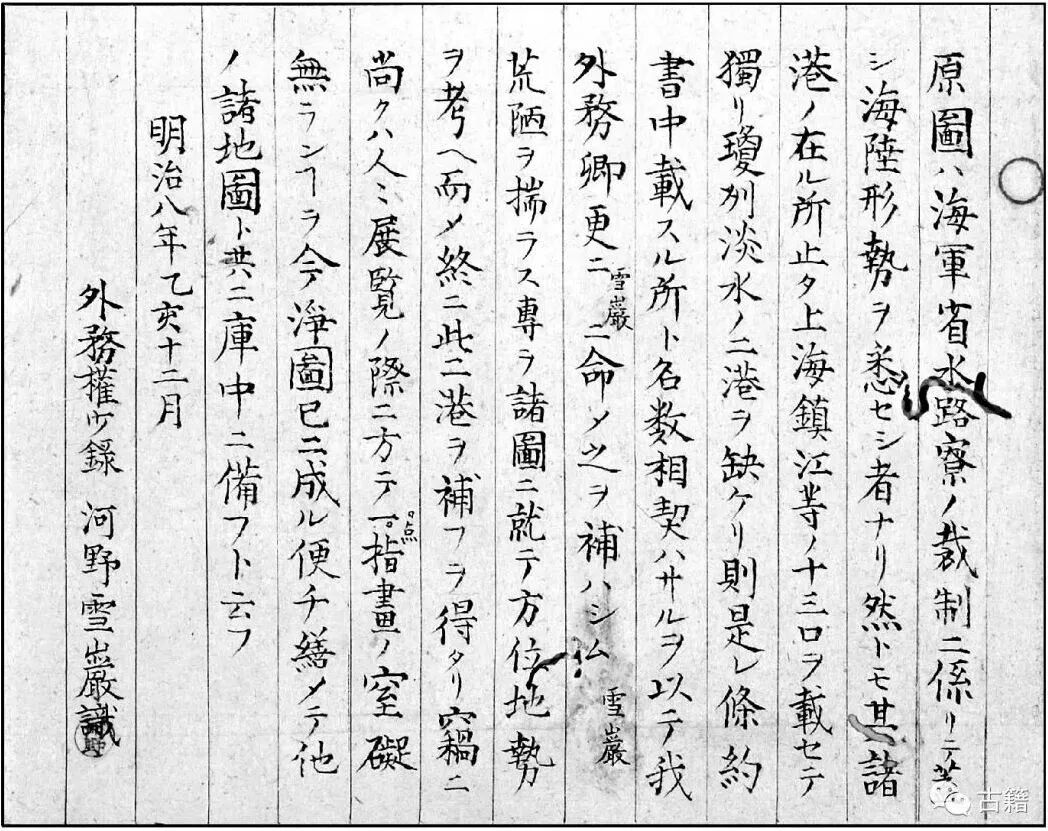 原圖ハ海軍省水路寮ノ裁制ニ係リテ其
シ海陸形勢ヲ悉セシ者ナリ然トモ其諸
港ノ在ル所止タ上海鎮江等ノ十三口ヲ載セテ
獨リ瓊州淡水ノ二港ヲ缺ケリ則是レ條約
書中載スル所ト名数相契ハサルヲ以テ我
外務卿更ニ雪巖ニ命メ之ヲ補ハシム雪巖
荒陋ヲ揣ラス專ヲ諸圖ニ就テ方位地勢
ヲ考ヘ而メ終ニ此二港ヲ補フヲ得タリ竊ニ
尚クハ人ミ展覧ノ際ニ方テ一点指畫ノ窒礙
無ランヿヲ今テ淨圖已ニ成ル便チ繕メテ他
ノ諸地圖ト共ニ庫中ニ備フト云フ
明治八年乙亥十二月
外務權少録 河野雪巖識
古籍